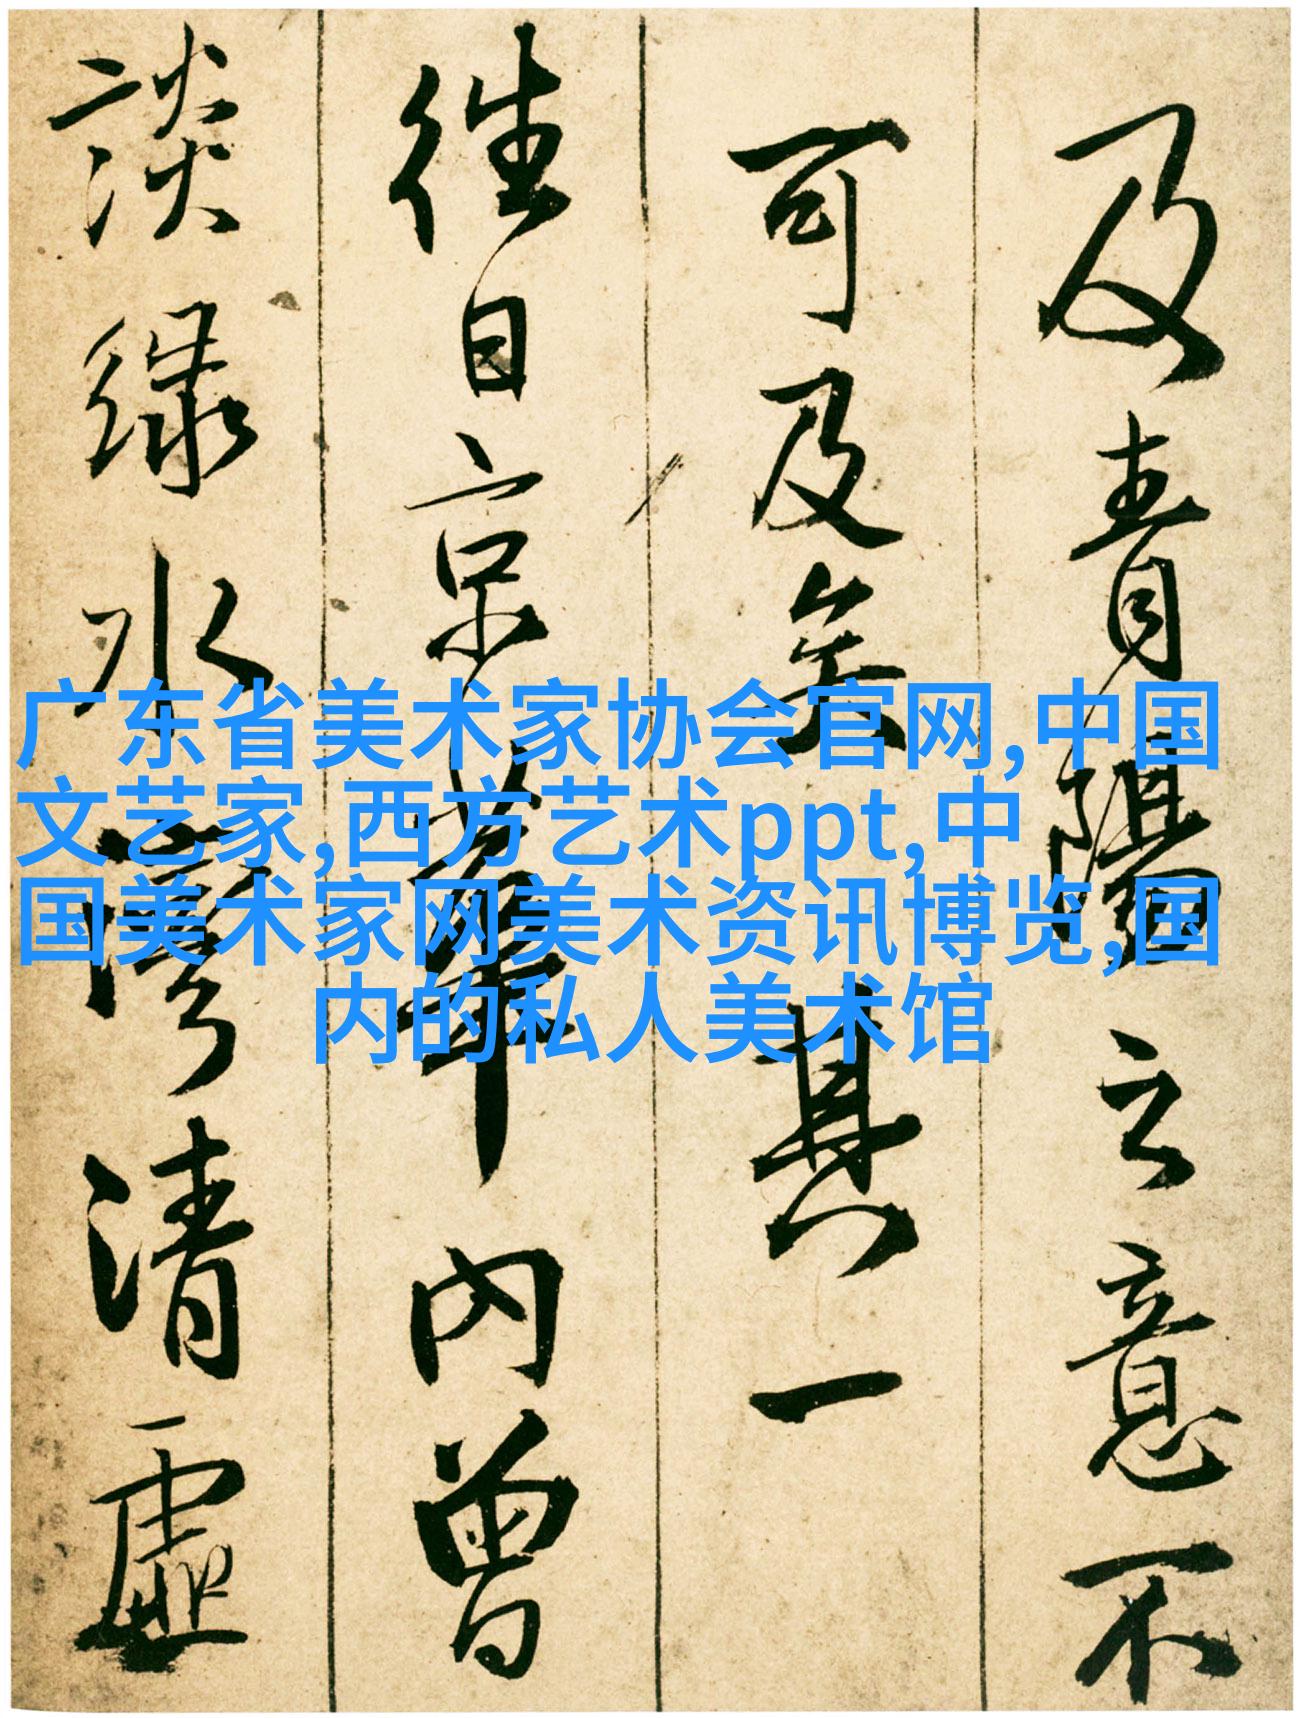 及青之意不
可及矣其一
往日京華内曾
談緑水灣清虛
广东省美术家协会官网,中国
文艺家,西方艺术ppt,中
国美术家网美术资讯博览,国
内的私人美术馆